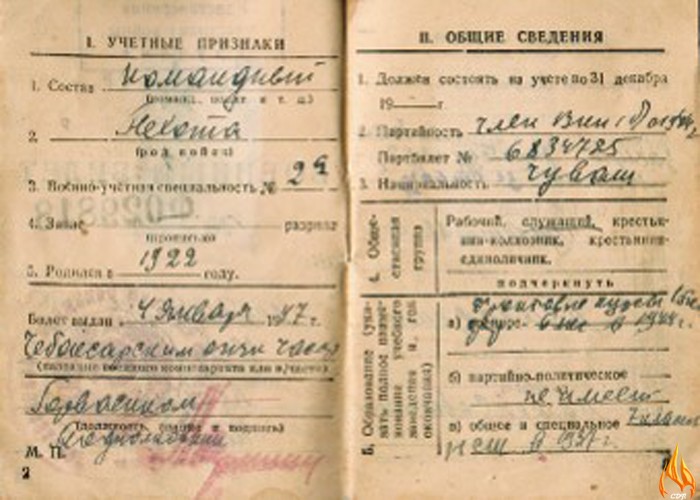 I. УЧЕТНЫЕ ПРИЗНАКИ
1. Состав командный
(команд., полит. и т. д.)
2. Пехота
(род войск)
3. Военно-учетная специальность № 2
4. Запас — разряда
(прописью)
5. Родился в 1922 году.
Билет выдан „4 января 1947 г.
Чебоксарским
(название военного комиссариата или в/части)
Горвоенком
(должность, звание и подпись)
Подполковник
М. П.
2
II. ОБЩИЕ СВЕДЕНИЯ
1. Должен состоять на учете по 31 декабря
19 — г.
2. Партийность член ВКП(б)
Партбилет № 6834725
3. Национальность чуваш
4. Общественная группа
Рабочий, служащий, крестьянин-колхозник, крестьянин-единоличник.
подчеркнуть
5. Образование (указать полное наименование учебного заведения и год окончания)
фронтовые курсы
а) в 1944 г.
б) партийно-политическое
не имеет
в) общее и специальное 7 классов
в 1937 г.